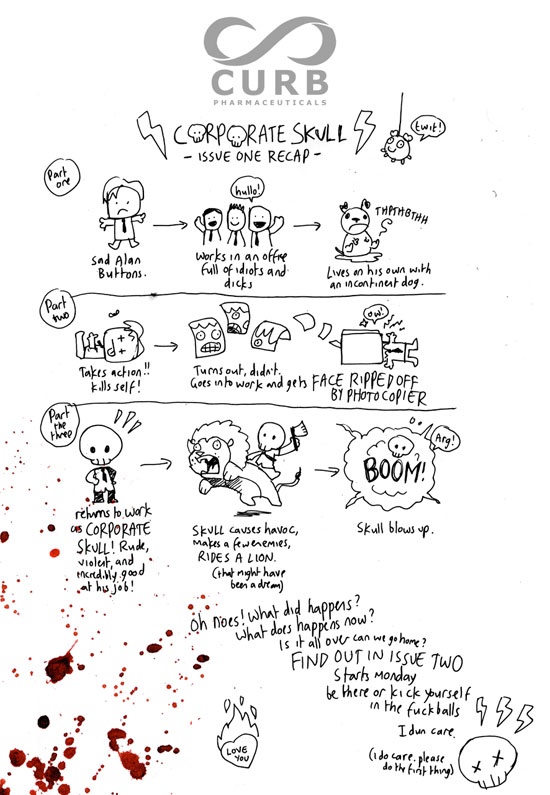 CURB
PHARMACEUTICALS
CORPORATE SKULL
- ISSUE ONE RECAP -
twit!
Part
one
Sad Alan
Buttons.
hullo!
Works in an office
full of idiots and
dicks
THPTHBTHH
Lives on his own with
an incontinent dog.
Part
two
d+
Takes action!!
kills self!
Turns out, didn't.
Goes into work and gets FACE RIPPED OFF
BY PHOTOCOPIER
OW!
Part
the
three
returns to work
as CORPORATE
SKULL! Rude,
violent, and
incredibly good
at his job!
SKULL causes havoc,
makes a few enemies,
RIDES A LION.
(that might have
been a dream)
Arg!
BOOM!
Skull blows up.
Oh noes! What did happens?
What does happens now?
Is it all over can we go home?
FIND OUT IN ISSUE TWO
Starts Monday
be there or kick yourself
in the fuckballs
I dun care.
(I do care. please
do the first thing)
LOVE
YOU